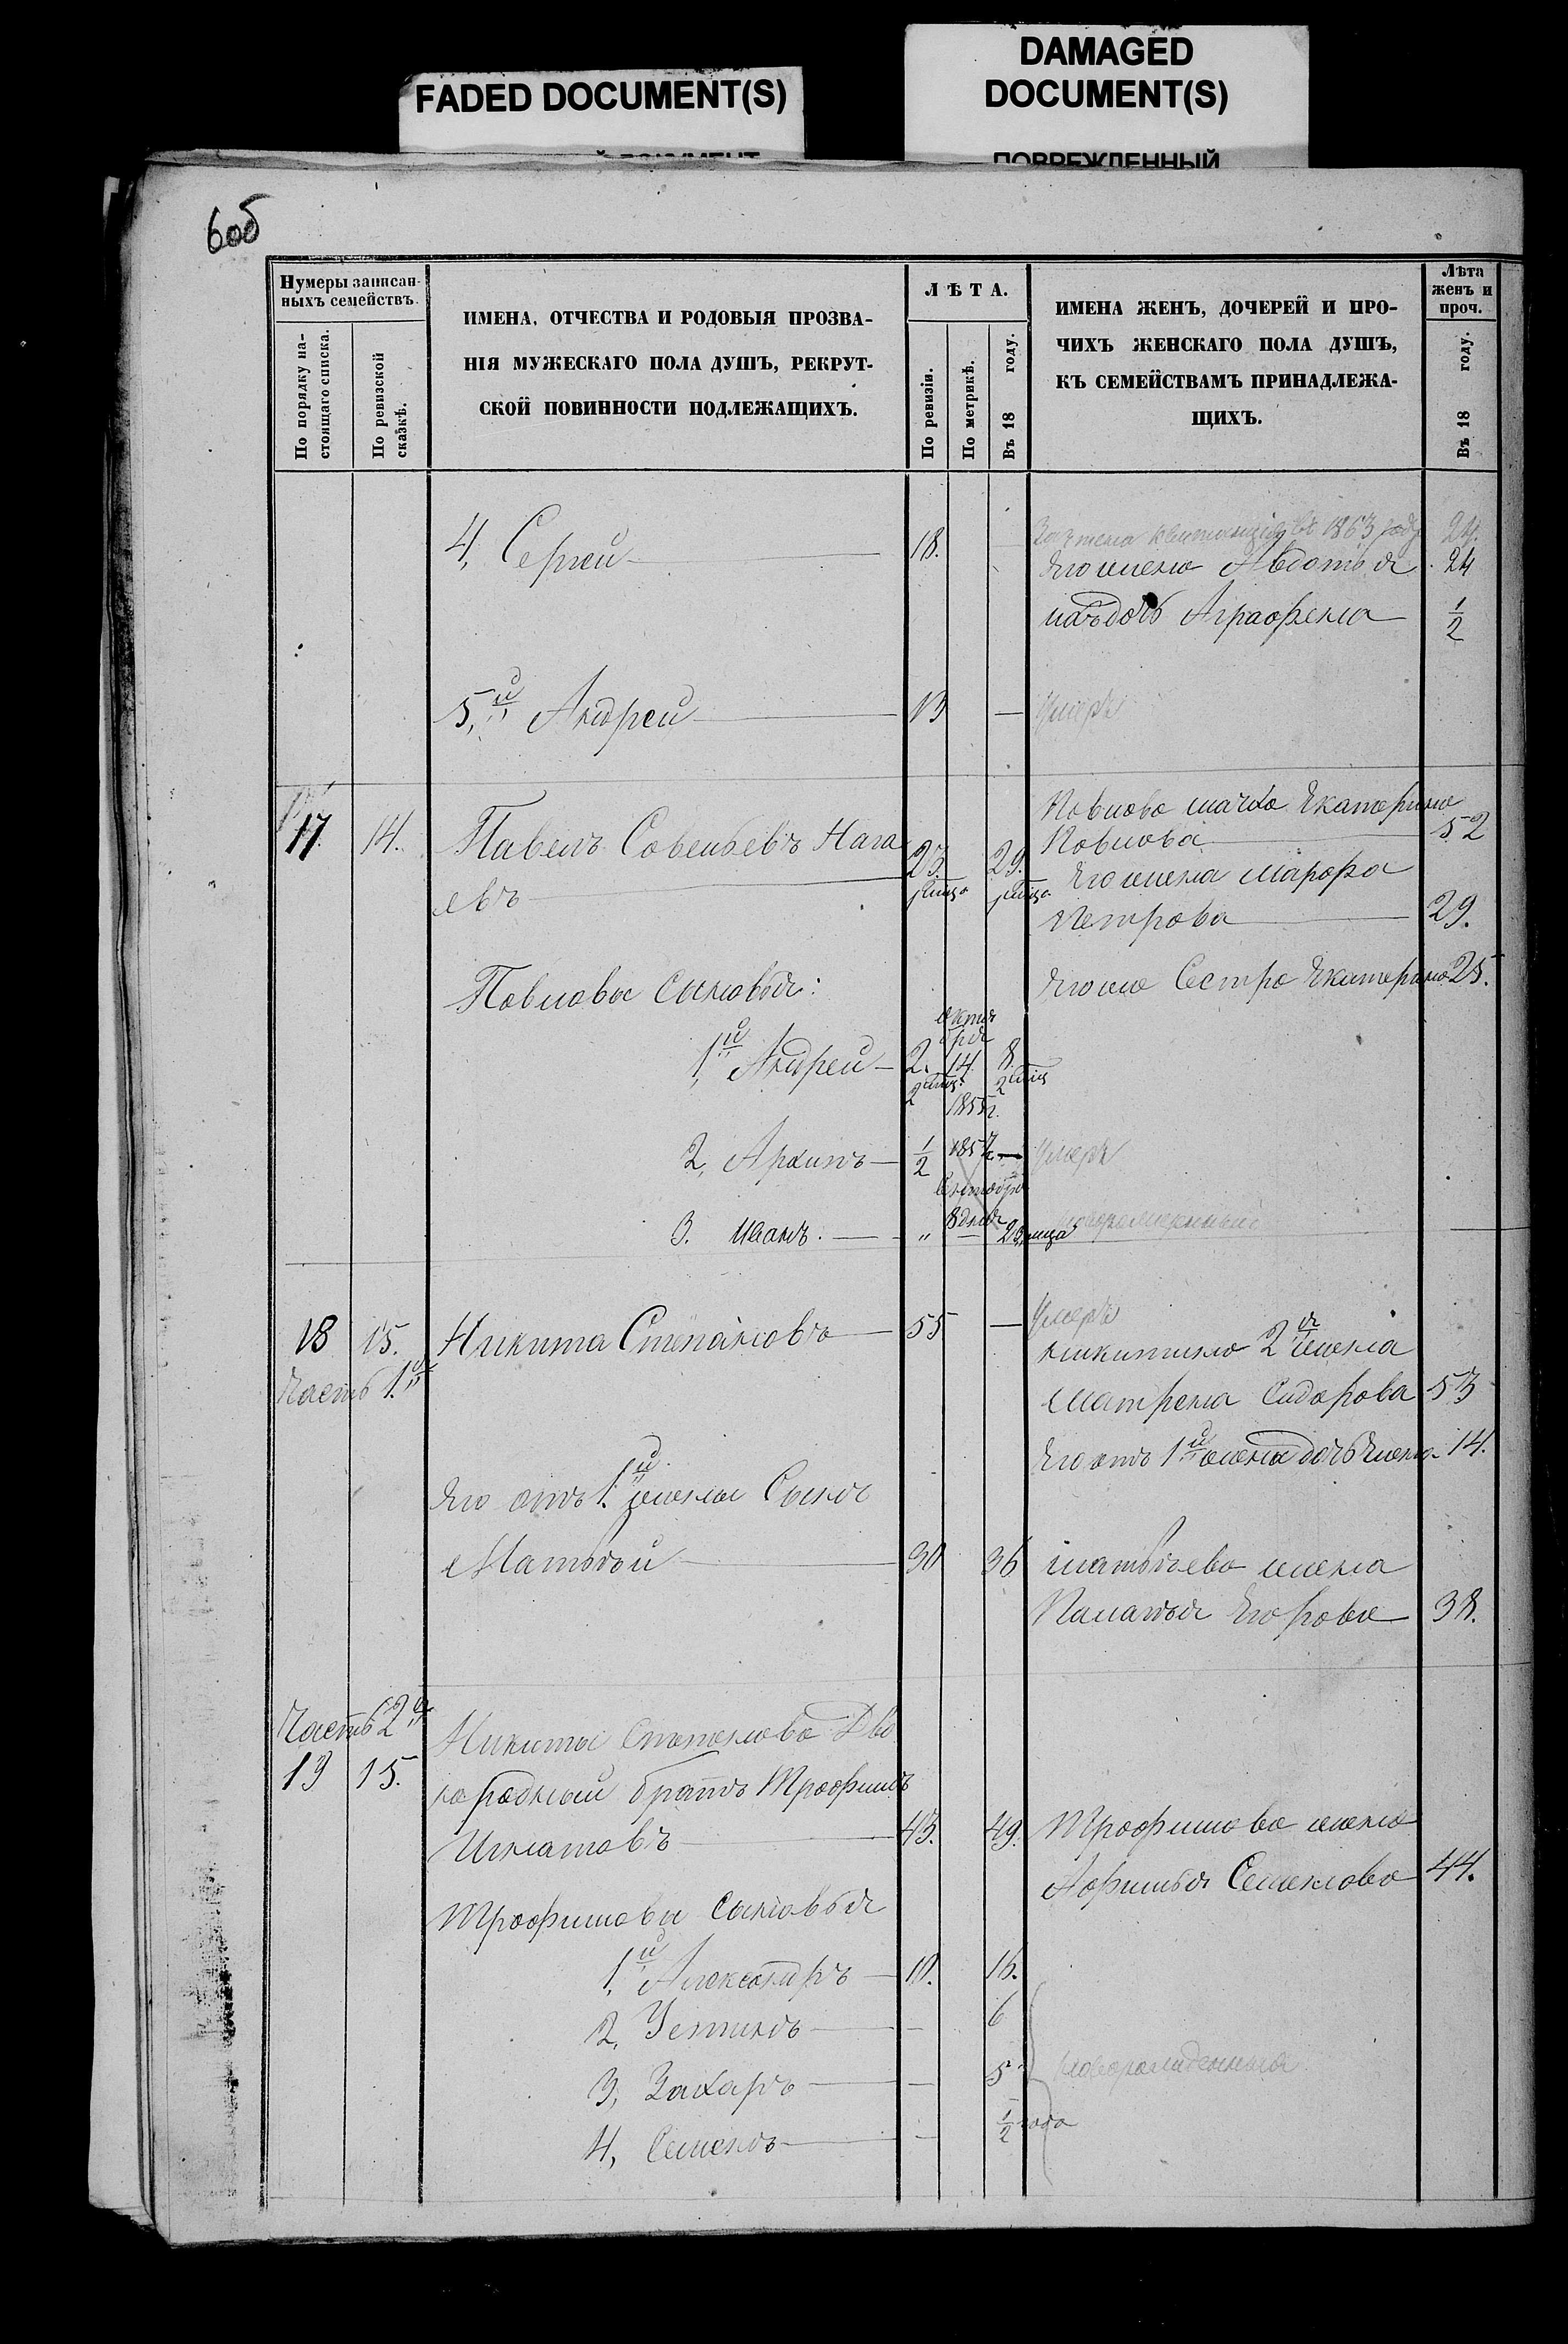 FADED DOCUMENT(S)
DAMAGED
DOCUMENT(S)
ПОВРЕЖДЕННЫЙ
6 об
Нумеры записан-
ныхъ семействъ.
По порядку на-
стоящаго списка.
По ревизской
сказкѣ.
ИМЕНА, ОТЧЕСТВА И РОДОВЫЯ ПРОЗВА-
НІЯ МУЖЕСКАГО ПОЛА ДУШЪ, РЕКРУТ-
СКОЙ ПОВИННОСТИ ПОДЛЕЖАЩИХЪ.
ЛѢТА.
По ревизіи.
По метрикѣ.
Въ 18 году.
ИМЕНА ЖЕНЪ, ДОЧЕРЕЙ И ПРО-
ЧИХЪ ЖЕНСКАГО ПОЛА ДУШЪ,
КЪ СЕМЕЙСТВАМЪ ПРИНАДЛЕЖА-
ЩИХЪ.
Лѣта
женъ и
проч.
Въ 18 году.
4, Сергей 18.
Зачтена квитанція въ 1863 году 24.
Его жена Авдотья 24
ихъ дочь Аграфена 1/2
5,й Андрей 13 — Умеръ
17. 14. Павелъ Савельевъ Нага
евъ 23. 29.
Павлова мачиха Екатерина
Павлова 52
Его жена Марфа
Петрова 29.
Его же Сестра Екатерина 25.
Павловы Сыновья:
1,й Андрей 2. 8
2 мѣс. 2 мѣс
октя
бря
14
1855 г.
2, Архипъ 1/2 1857 г. — Умеръ
3. Иванъ. „ 8 дня
18 15. Никита Степановъ 55 — Умеръ
Часть 1.я
Никитина 2я жена
Матрена Сидорова 53
Его отъ 1й жены дочь Елена 14.
Его отъ 1.й жены Сынъ
Матвѣй 30 36
Матвѣева жена
Паланья Егорова 38.
Часть 2я
19 15. Никиты Степанова Дво
юродный братъ Трофимъ
Игнатовъ 43. 49.
Трофимова жена
Афимья Семенова 44.
Трофимовы Сыновья
1.й Александръ 10. 16.
2, Устинъ — 6
3, Захаръ — 5
4, Семенъ — 1/2 года
новорожденные